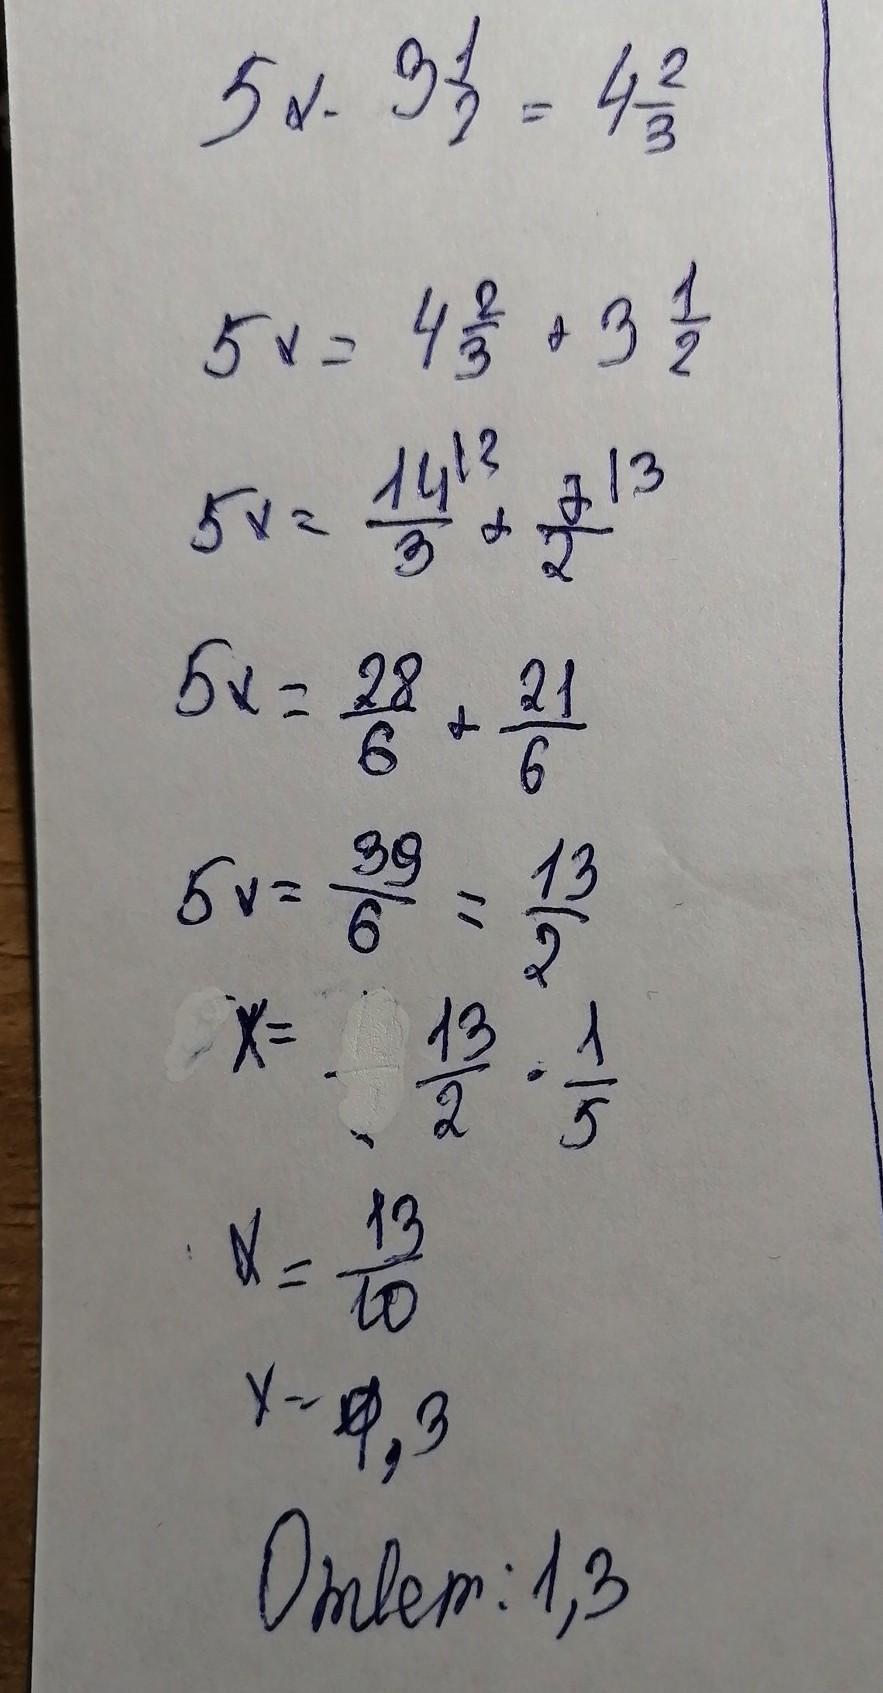 5x - 3 1/2 = 4 2/3
5x = 4 2/3 + 3 1/2
5x = 14/3 |2 + 7/2 |3
5x = 28/6 + 21/6
5x = 39/6 = 13/2
x = 13/2 · 1/5
x = 13/10
x = 1,3
Ответ: 1,3